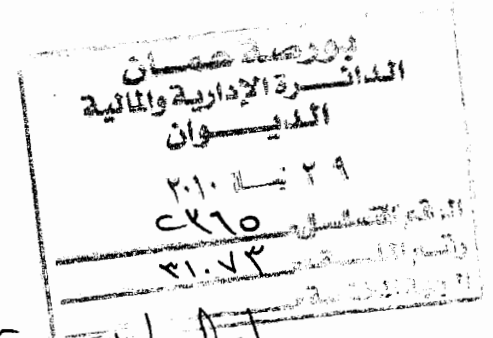 بورصة عمان
الدائرة الإدارية والمالية
الديوان
٢٩ نيسان ٢٠١٠
الرقم المتسلسل
رقم الملف ٣١٠٧٣
الجهة المختصة